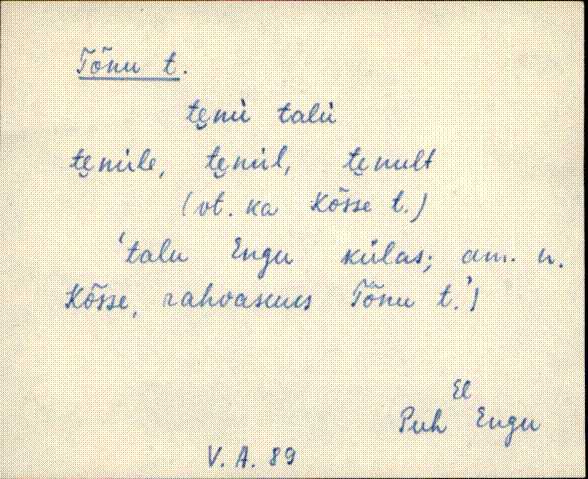 Tõnu t.
te̮nu̇ talu̇
te̮nu̇le, te̮nu̇l, te̮nult
(vt. ka Kõsse t.)
'talu Engu külas; am. n.
Kõsse, rahvasuus Tõnu t.')
El
Puh Engu
V. A. 89